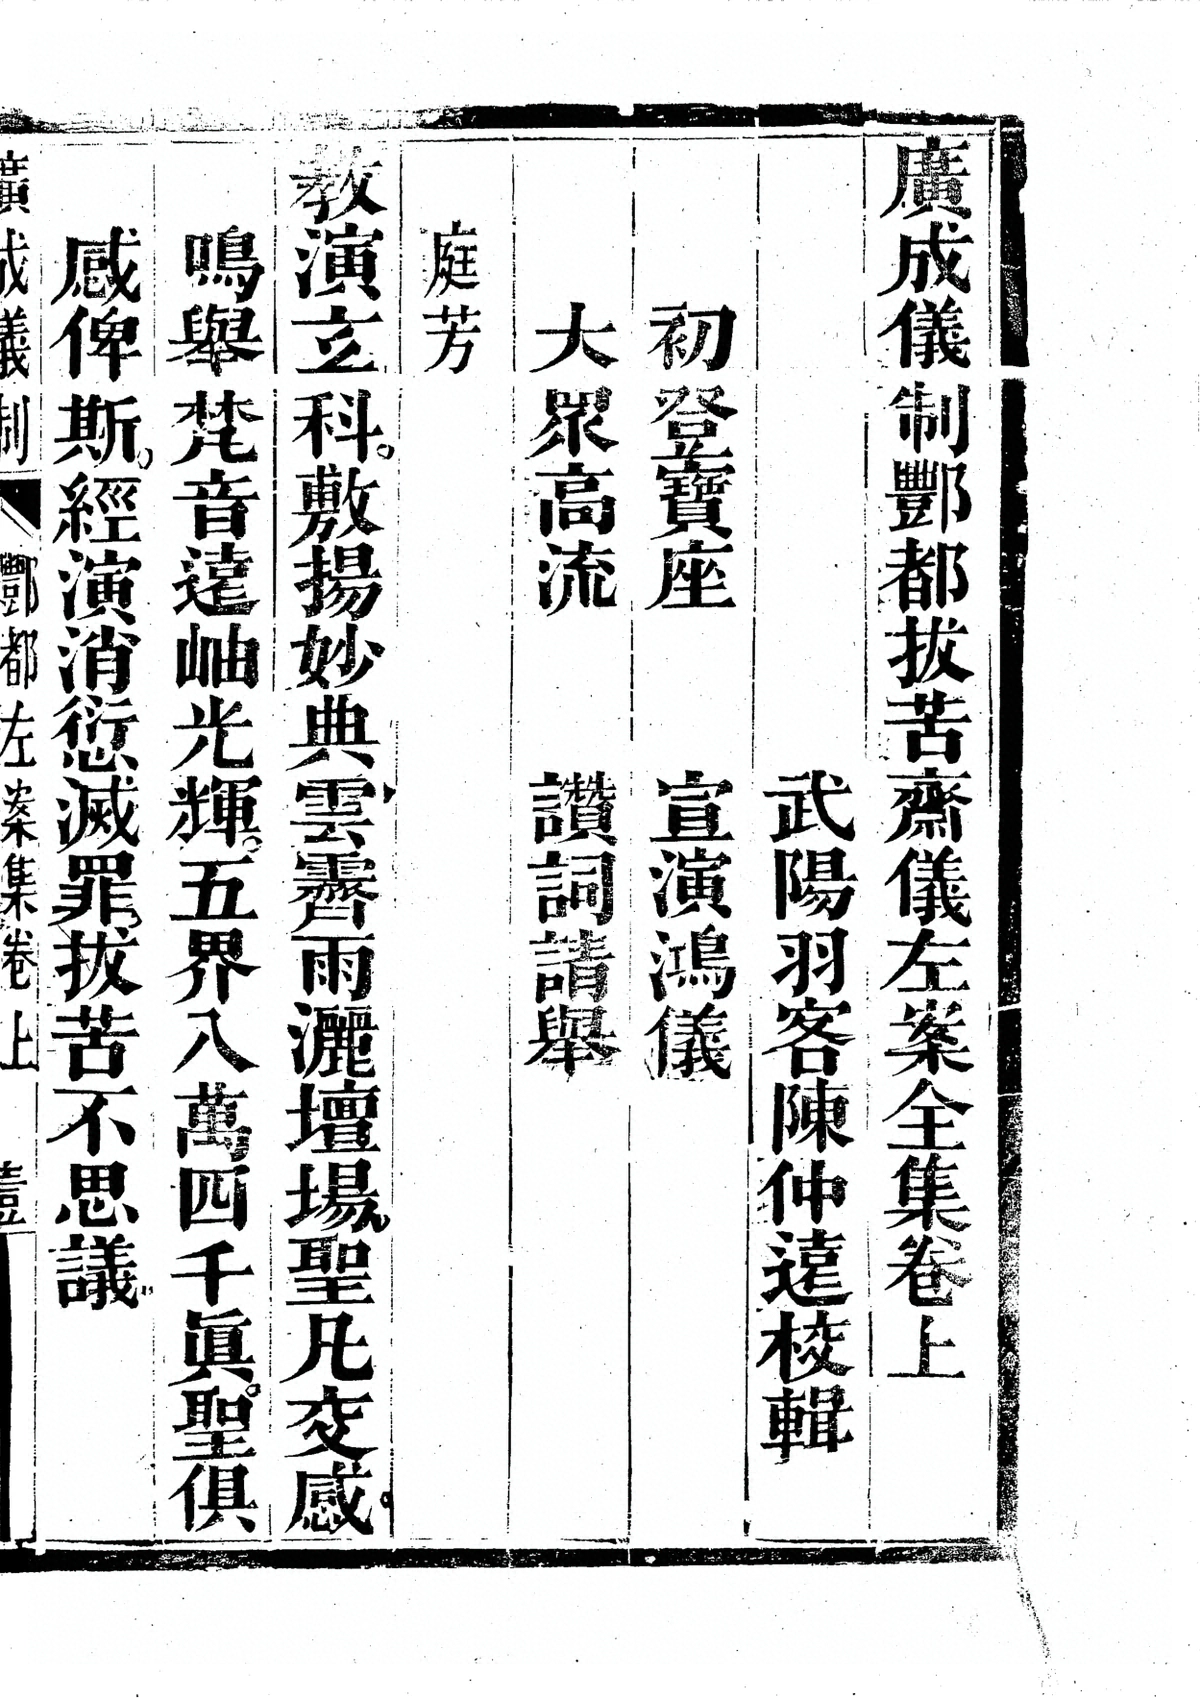 廣成儀制酆都拔苦齋儀左案全集卷上
武陽羽客陳仲遠校輯
初登寶座　宣演鴻儀
大眾高流　讚詞請舉
庭芳
教演立科。敷揚妙典雲霽雨灑壇場。聖凡交感。
鳴舉梵音遠岫光輝。五界八萬四千眞。聖俱
感俾斯。經演消愆滅罪。拔苦不思議。
廣成儀制　酆都左案集卷上　壹